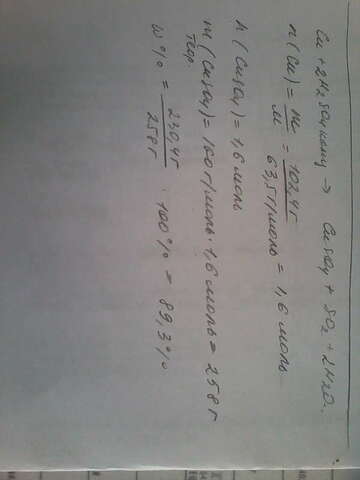 Cu + 2H2SO4 конц → CuSO4 + SO2 + 2H2O.
n(Cu) = m/M = 102,4г/63,5г/моль = 1,6 моль
n(CuSO4) = 1,6 моль
m(CuSO4) = 160г/моль · 1,6 моль = 258г
теор.
W% = 230,4г/258г · 100% = 89,3%